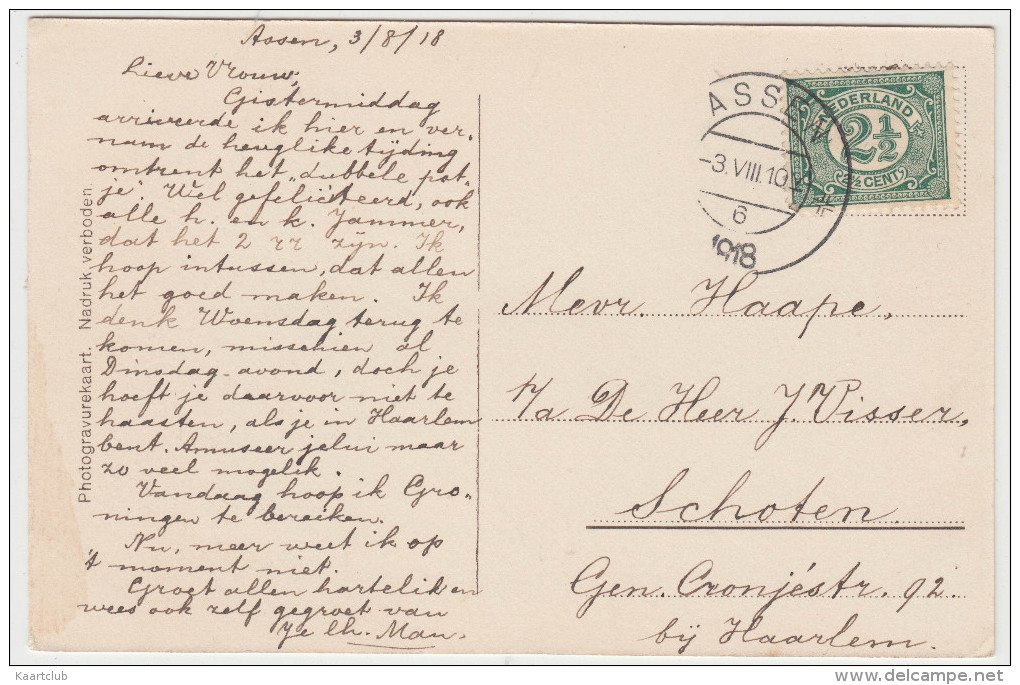 Assen, 3/8/18
Lieve Vrouw,
Gistermiddag
arriveerde ik hier en ver-
nam de heuglike tijding
omtrent het "dubbele pot-
je". Wel gefeliciteerd, ook
alle h. en k. Jammer,
dat het 2 rr zijn. Ik
hoop intussen, dat allen
het goed maken. Ik
denk Woensdag terug te
komen, misschien al
Dinsdag-avond, doch je
hoeft je daarvoor niet te
haasten, als je in Haarlem
bent. Amuseer jelui maar
zo veel mogelik.
Vandaag hoop ik Gro-
ningen te bereiken.
Nu, meer weet ik op
't moment niet.
Groet allen hartelik en
wees ook zelf gegroet van
Je lh. Man.
Photogravurekaart. Nadruk verboden.
ASSEN
-3.VIII.10
6
1918
NEDERLAND
2½
2½ CENT
Mevr. Haape,
p/a De Heer J. Visser,
Schoten
Gen. Cronjéstr. 92
bij Haarlem.
Kaartclub
delcampe.net